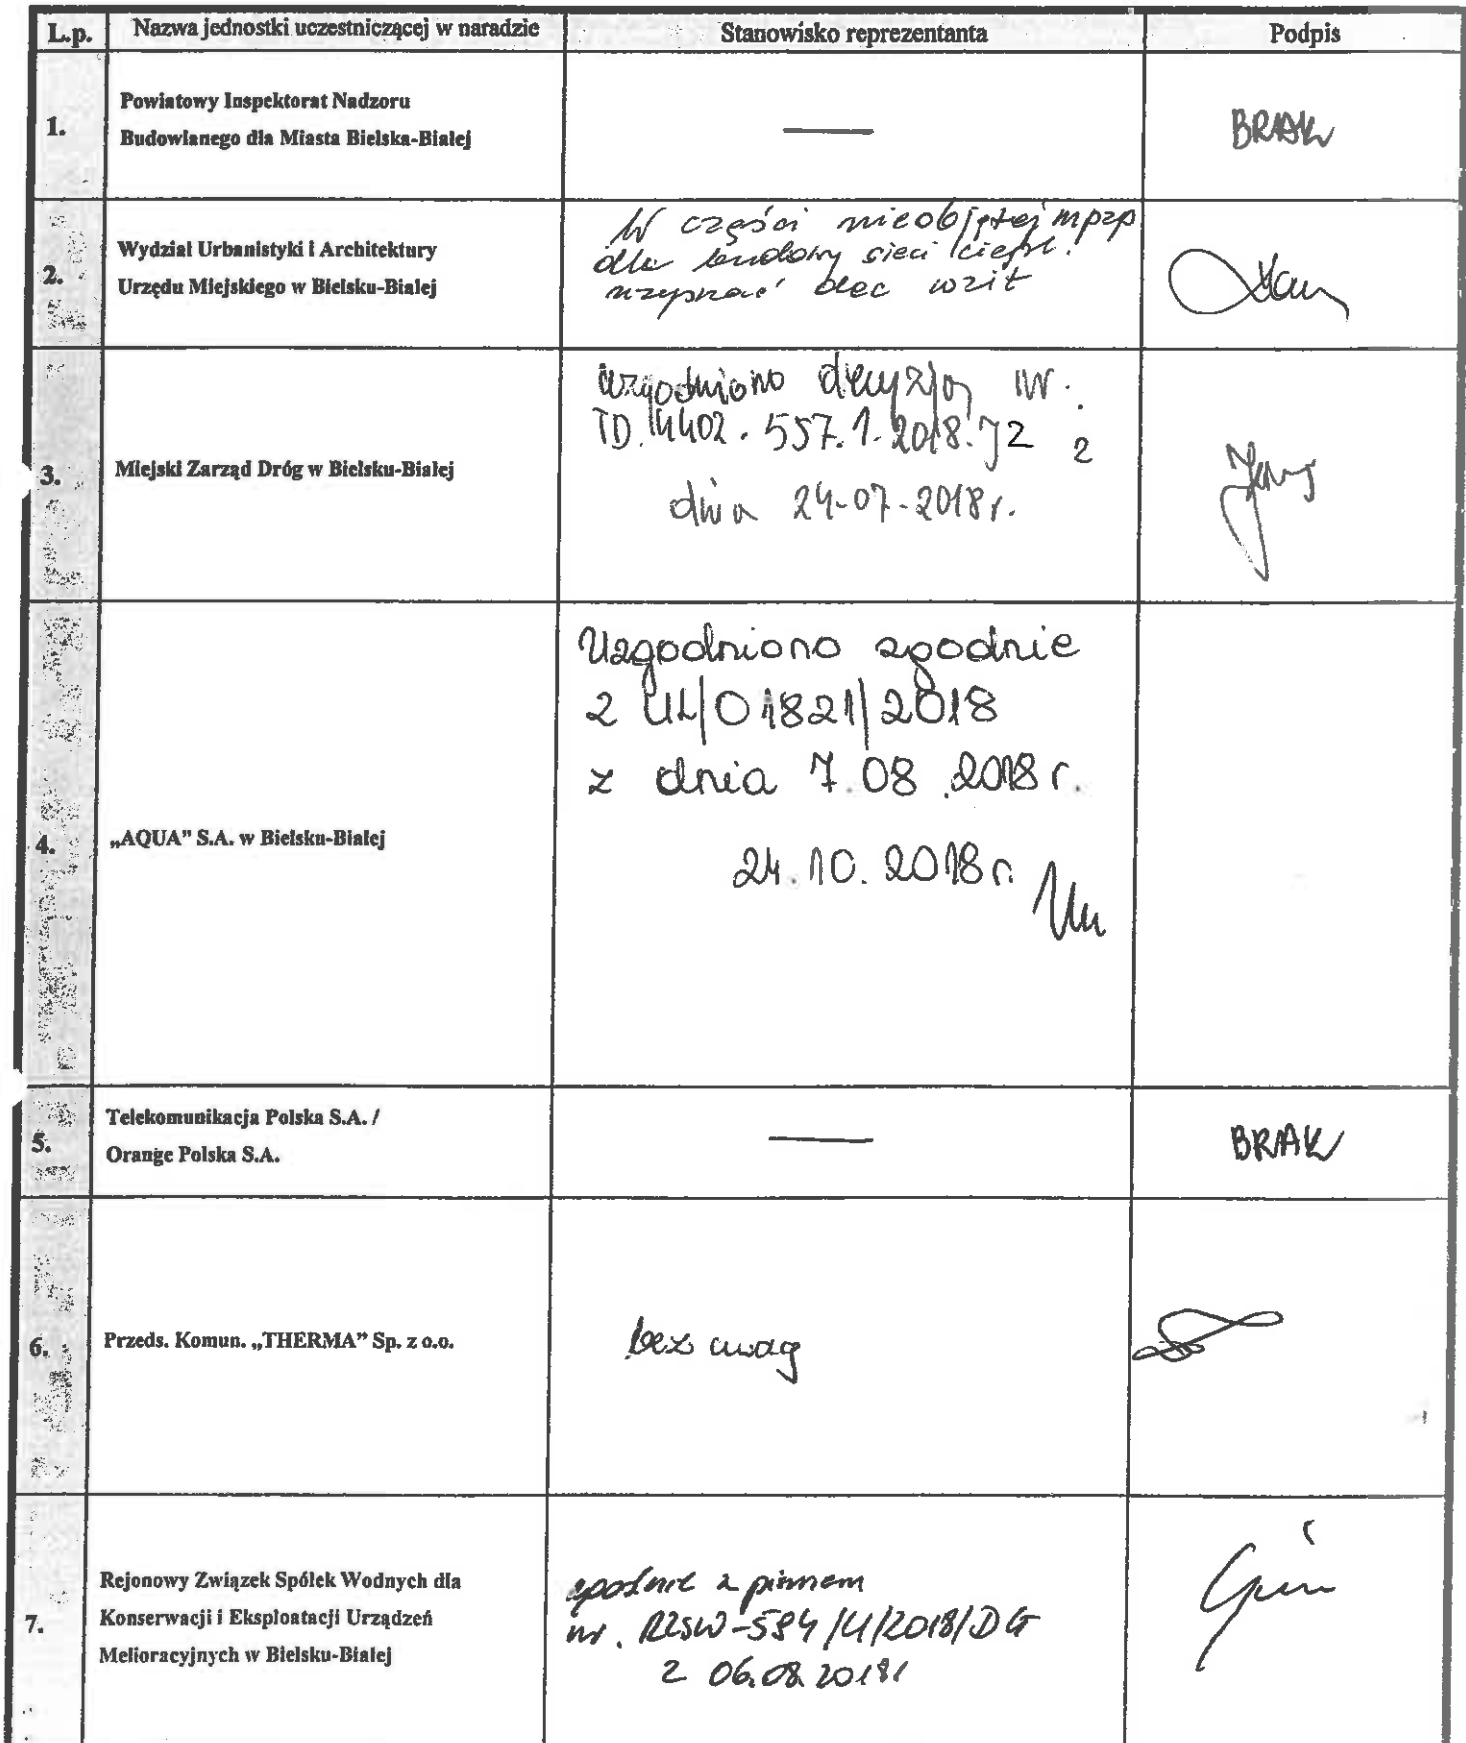 L.p. Nazwa jednostki uczestniczącej w naradzie Stanowisko reprezentanta Podpis
1. Powiatowy Inspektorat Nadzoru
Budowlanego dla Miasta Bielska-Białej — BRAK
2. Wydział Urbanistyki i Architektury
Urzędu Miejskiego w Bielsku-Białej
W części nieobjętej mpzp
dla budowy sieci ciepł.
uzyskać dec wzit
3. Miejski Zarząd Dróg w Bielsku-Białej
uzgodniono decyzją nr.
TD.4402.557.1.2018.JZ z
dnia 24-07-2018r.
4. „AQUA” S.A. w Bielsku-Białej
Uzgodniono zgodnie
z UL/01821/2018
z dnia 7.08.2018r.
24.10.2018r.
5. Telekomunikacja Polska S.A. /
Orange Polska S.A. — BRAK
6. Przeds. Komun. „THERMA” Sp. z o.o. bez uwag
7. Rejonowy Związek Spółek Wodnych dla
Konserwacji i Eksploatacji Urządzeń
Melioracyjnych w Bielsku-Białej
zgodnie z pismem
nr. RZSW-584/U/2018/DG
z 06.08.2018r